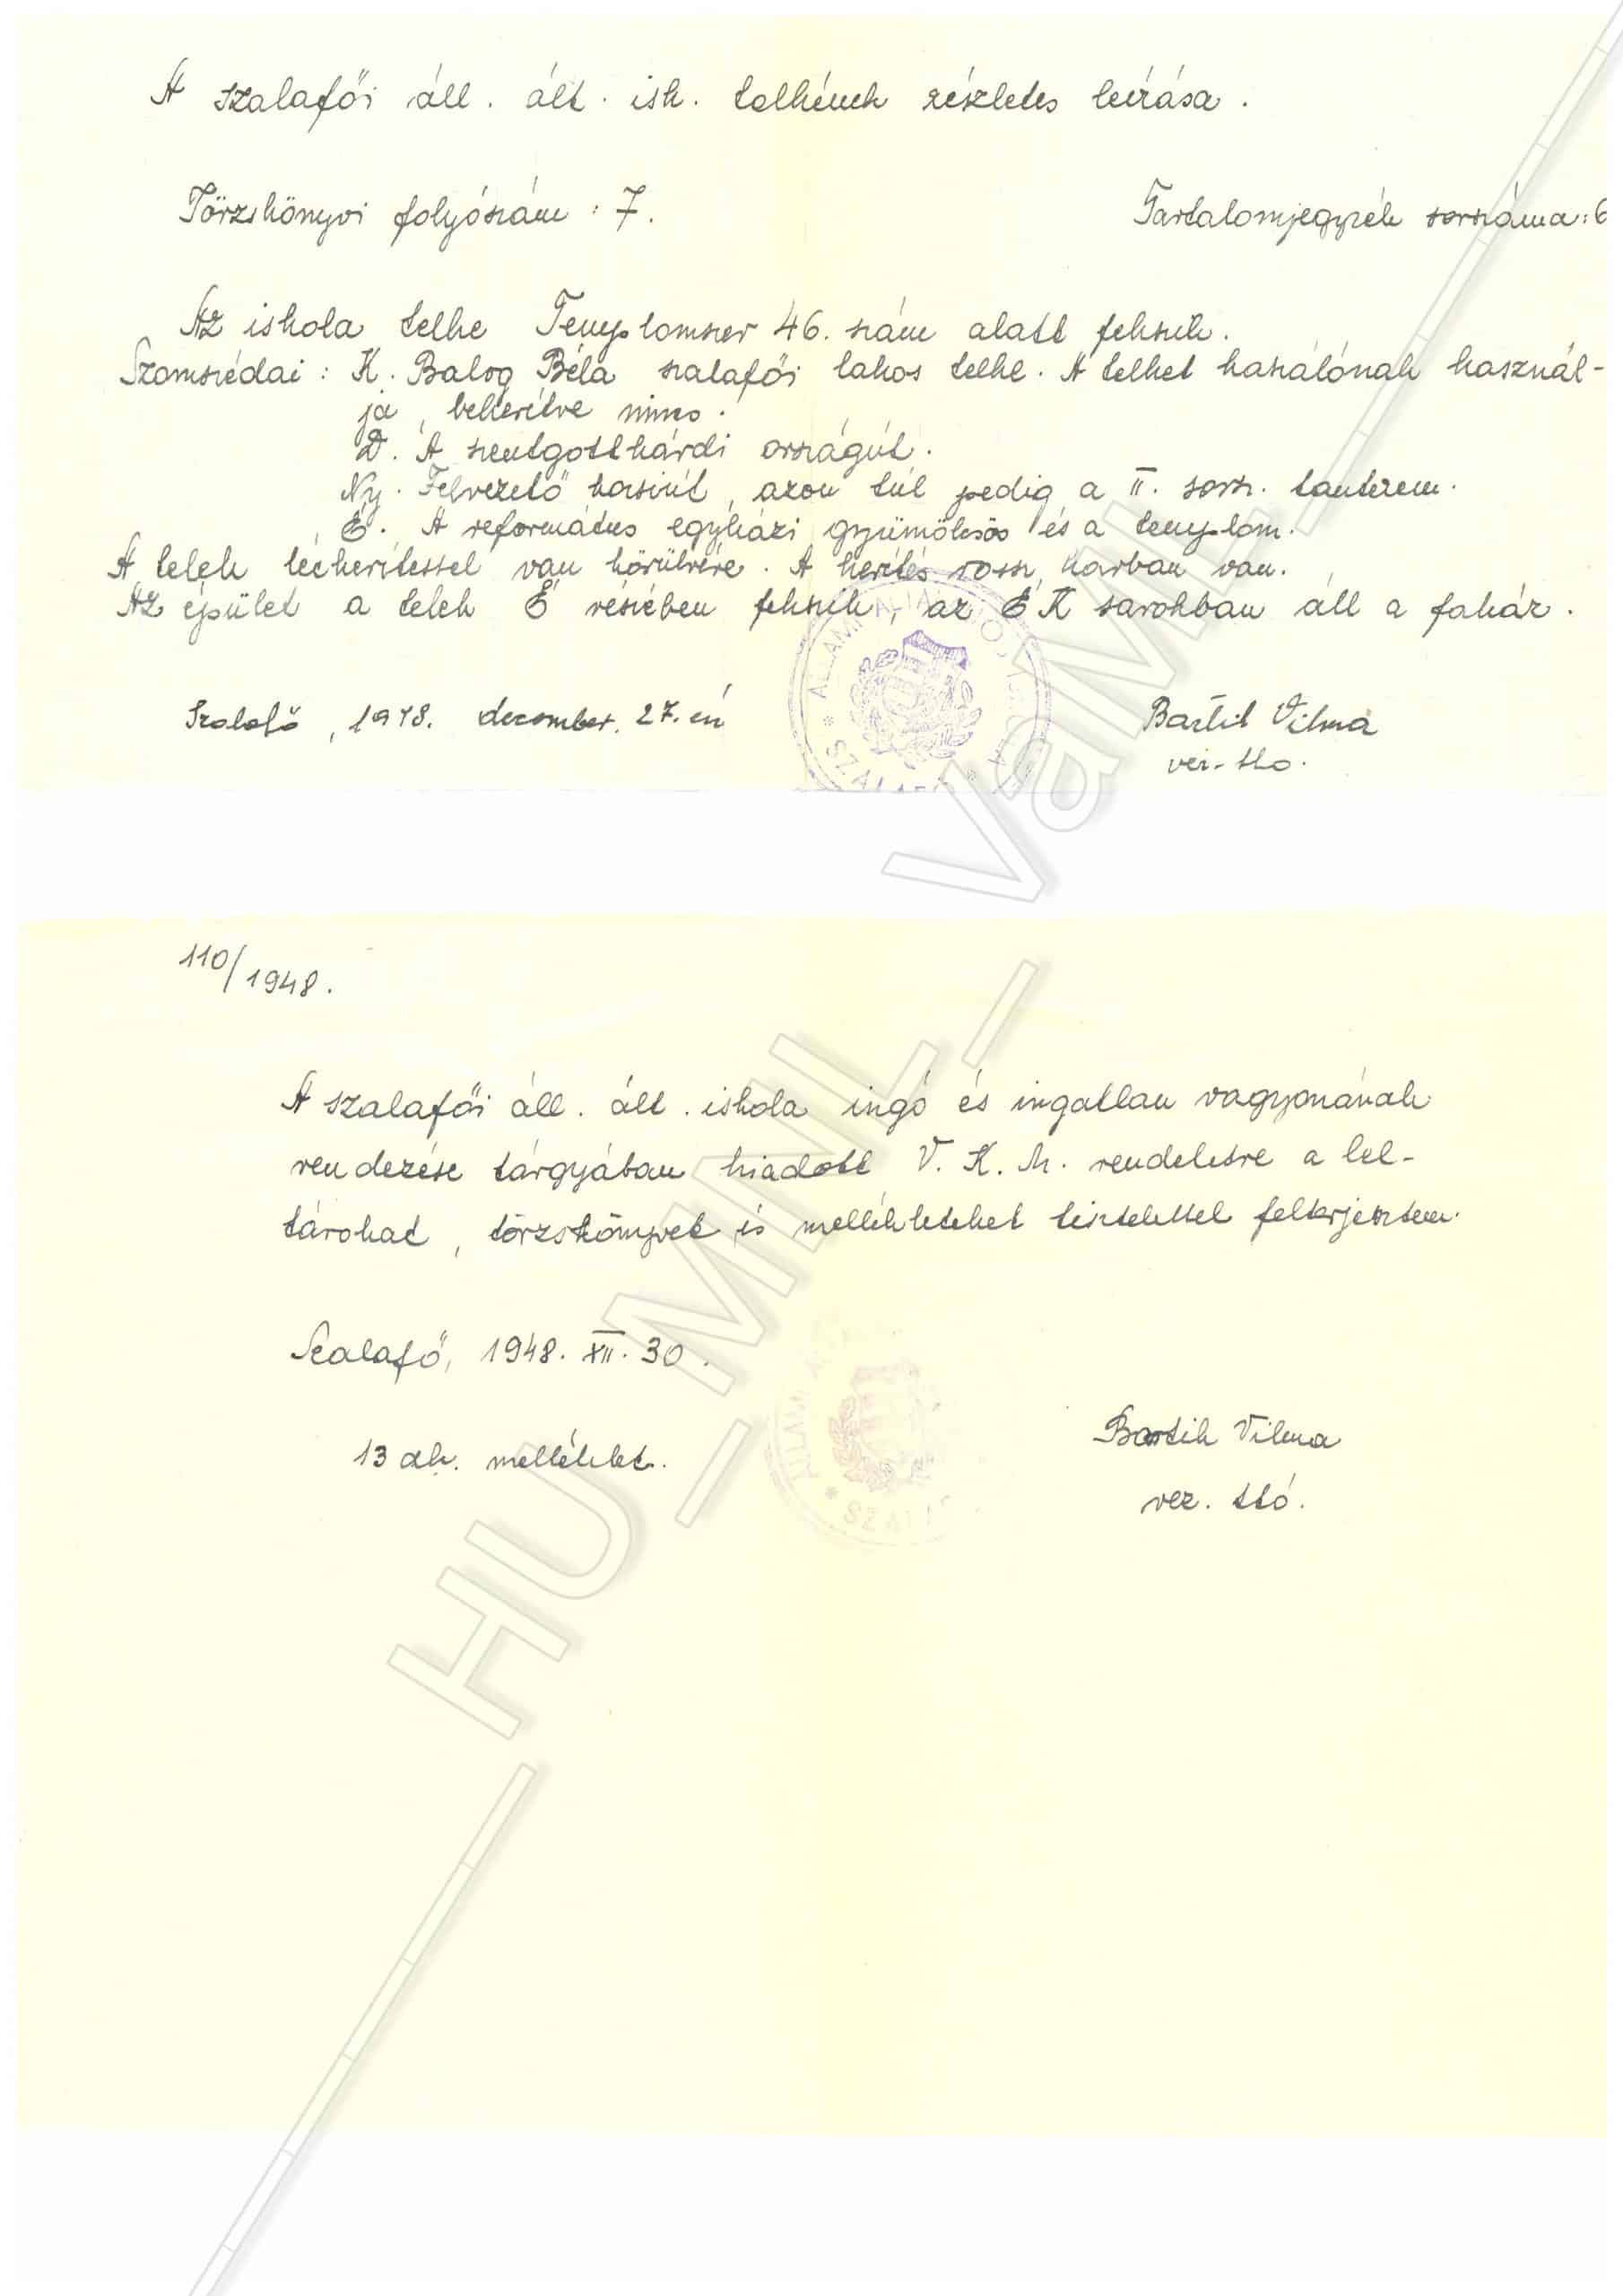 A szalafői áll. ált. isk. telkének részletes leírása.
Törzskönyvi folyószám: 7.
Tartalomjegyzék sorszáma: 6
Az iskola telke Templomszer 46. szám alatt fekszik.
Szomszédai: K. Balog Béla szalafői lakos telke. A telket kaszálónak használ-
ja, bekerítve nincs.
D. A szentgotthárdi országút.
Ny. Felvezető kocsiút, azon túl pedig a II. sorsz. tanterem.
É. A református egyházi gyümölcsös és a templom.
A telek léckerítéssel van körülvéve. A kerítés rossz karban van.
Az épület a telek É részében fekszik, az ÉK sarokban áll a faház.
Szalafő, 1948. december. 27.-én
Bartik Vilma
vez. ttó.
110/1948.
A szalafői áll. ált. iskola ingó és ingatlan vagyonának
rendezése tárgyában kiadott V. K. M. rendeletre a lel-
tárokat, törzskönyvet és mellékleteket tisztelettel felterjesztem.
Szalafő, 1948. XII. 30.
13 db. melléklet.
Bartik Vilma
vez. ttó.
HU_MNL_VaML_